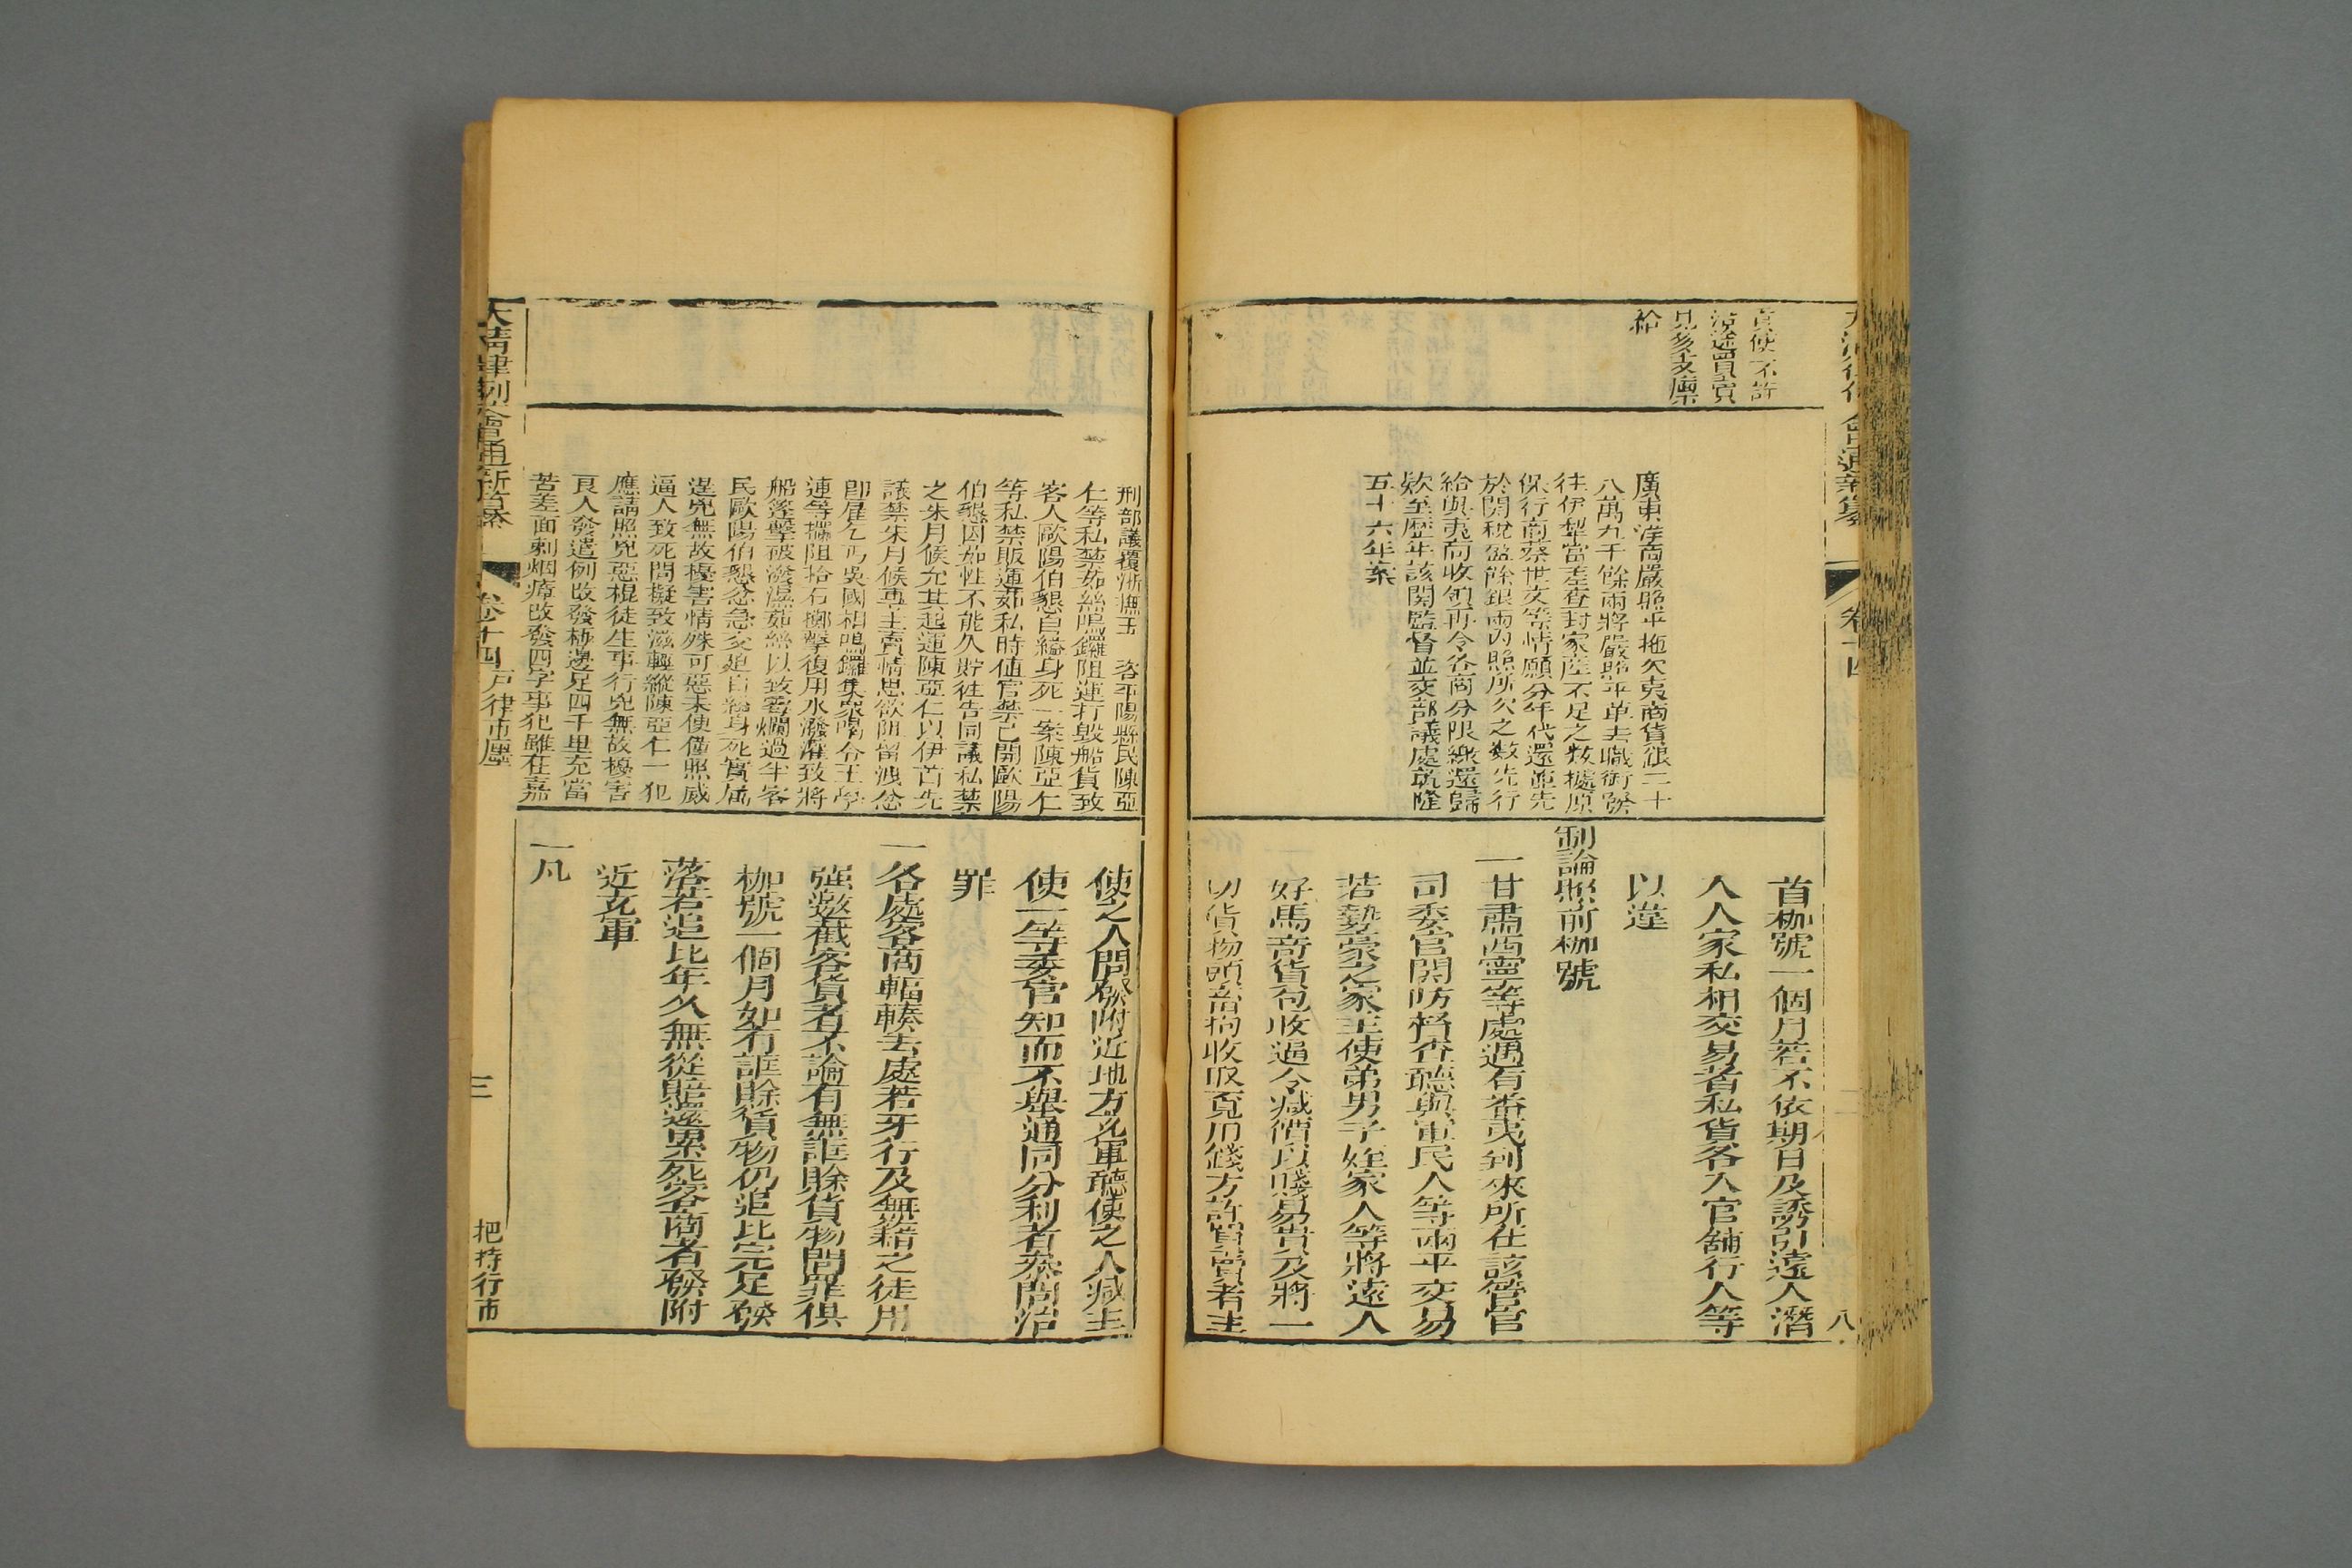 貢使不許
沿途買賣
見張本文庫
給
廣東洋商嚴照平拖欠夷商貨銀二十
八萬九千餘兩將嚴照平革去職銜發
往伊犁當差查封家產不足之數據原
保行商蔡世文等情願分年代還並先
於關稅盈餘銀兩內照所欠之數先行
給與夷商收領再令各商分限繳還歸
欵至歷年該關監督並交部議處乾隆
五十六年案
首枷號一個月若不依期日及誘引遠人潛
入人家私相交易者私貨各入官舖行人等
以違
制論照前枷號
一甘肅西寧等處遇有番夷到來所在該管官
司委官關防督查聽與軍民人等兩平交易
若勢豪之家主使弟男子姪家人等將遠人
好馬奇貨包收逼令減價以賤易貴及將一
切貨物頭畜拘收取覓用錢方許買賣者主
八
刑部議覆浙撫王 咨平陽縣民陳亞
仁等私禁茹絲鳴鑼阻運打毀船貨致
客人歐陽伯懇自縊身死一案陳亞仁
等私禁販運茹私時值官禁已開歐陽
伯懇因茹性不能久貯往告同議私禁
之朱月候允其起運陳亞仁以伊首先
議禁朱月候專主賣情思欲阻留洩忿
即雇乞丐吳國相鳴鑼集衆喝令王學
連等攔阻拾石擲擊復用水潑灌致將
船篷擊破潑濕茹絲以致霉爛過半客
民歐陽伯懇忿急交迫自縊身死實屬
逞兇無故擾害情殊可惡未便僅照威
逼人致死問擬致滋輕縱陳亞仁一犯
應請照兇惡棍徒生事行兇無故擾害
良人發遣例改發極邊足四千里充當
苦差面刺烟瘴改發四字事犯雖在嘉
使之人問發附近地方充軍聽使之人減主
使一等委官知而不舉通同分利者叅問治
罪
一各處客商輻輳去處若牙行及無籍之徒用
强邀截客貨者不論有無誆賒貨物問罪俱
枷號一個月如有誆賒貨物仍追比完足發
落若追比年久無從賠還累死客商者發附
近充軍
一凡
大清律例會通新纂 卷十四 戶律市廛 三 把持行市